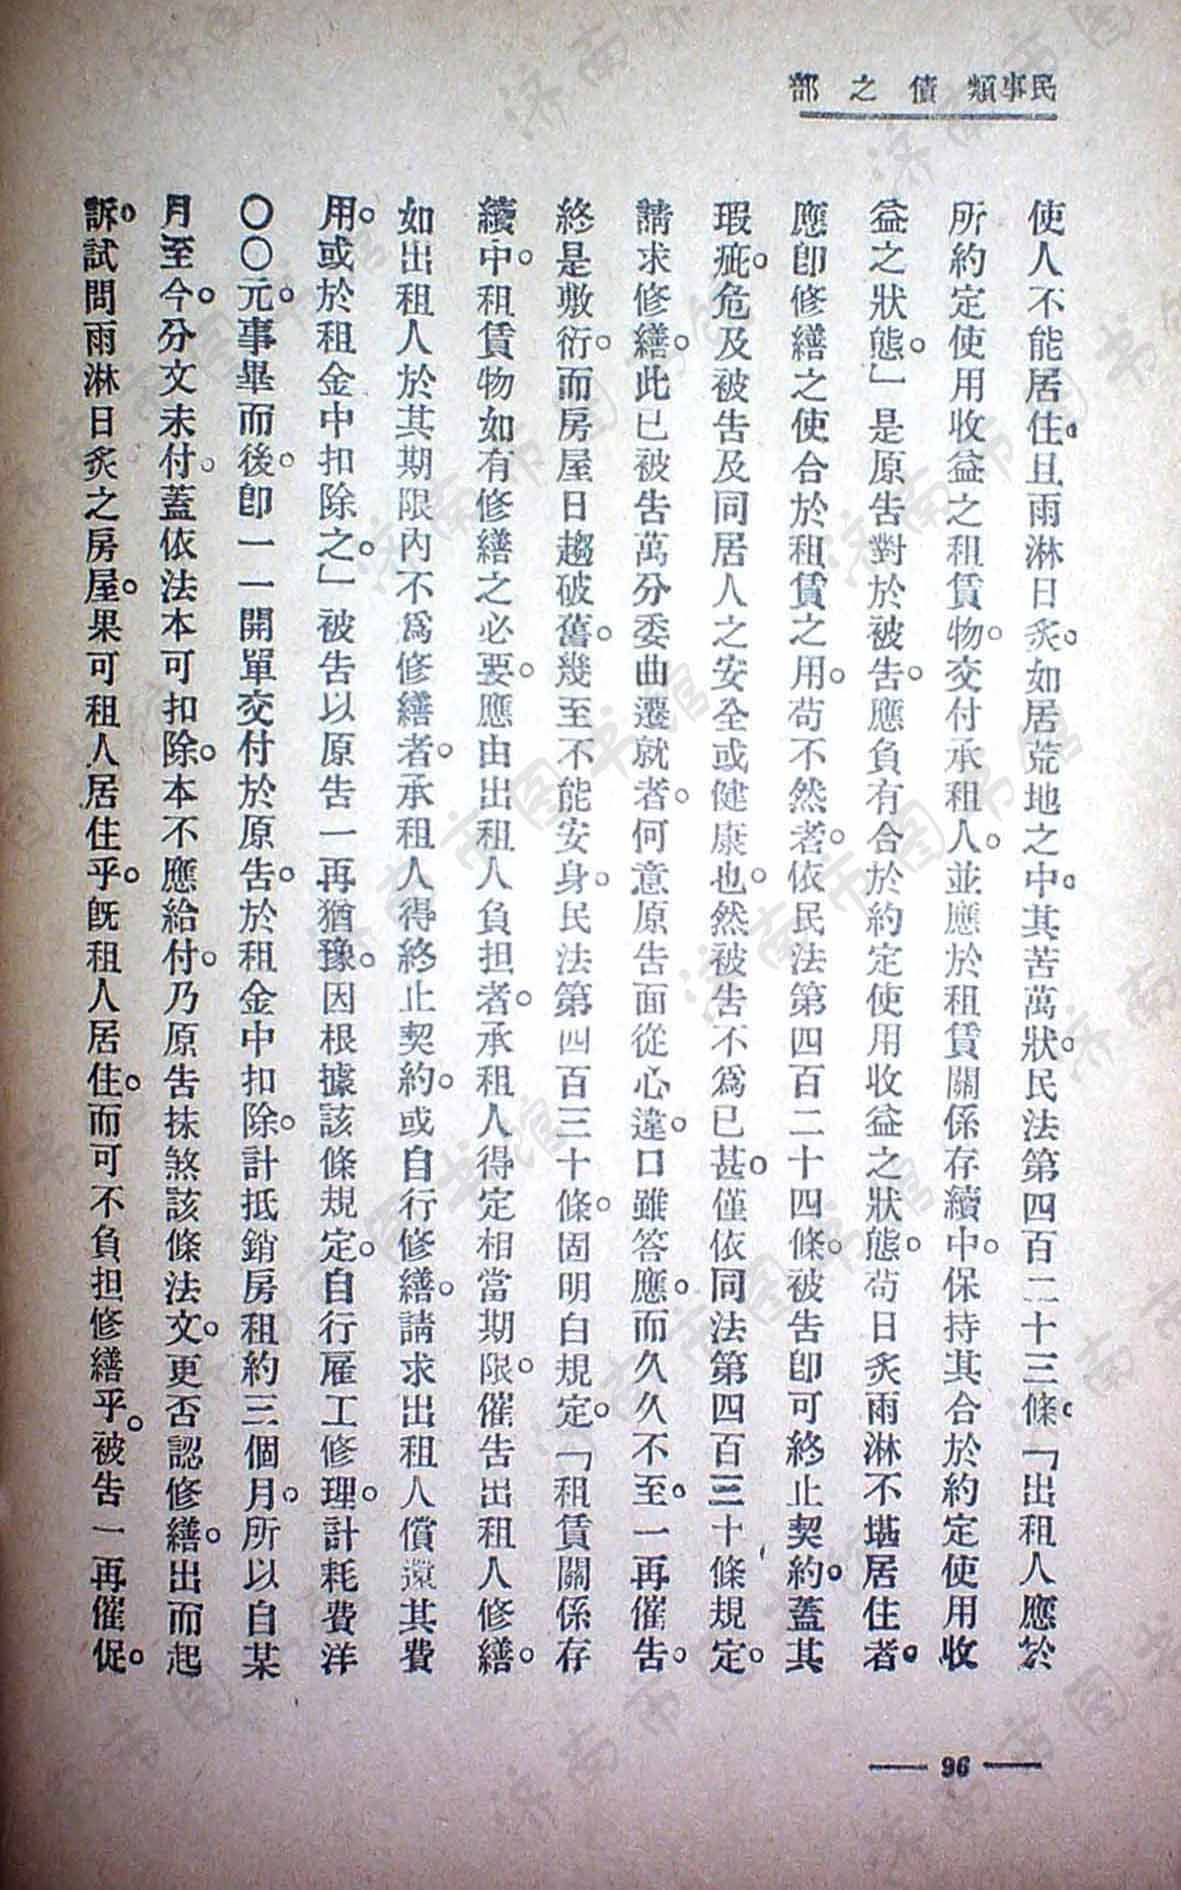 民事類 債之部
使人不能居住。且雨淋日炙。如居荒地之中。其苦萬狀。民法第四百二十三條。「出租人應於
所約定使用收益之租賃物。交付承租人。並應於租賃關係存續中。保持其合於約定使用收
益之狀態。」是原告對於被告。應負有合於約定使用收益之狀態。苟日炙雨淋不堪居住者。
應卽修繕之使合於租賃之用。苟不然者。依民法第四百二十四條。被告卽可終止契約。蓋其
瑕疵。危及被告及同居人之安全或健康也。然被告不爲已甚。僅依同法第四百三十條規定。
請求修繕。此已被告萬分委曲遷就者。何意原告面從心違。口雖答應。而久久不至。一再催告。
終是敷衍。而房屋日趨破舊。幾至不能安身。民法第四百三十條。固明白規定。「租賃關係存
續中。租賃物如有修繕之必要。應由出租人負担者。承租人得定相當期限。催告出租人修繕。
如出租人於其期限內不爲修繕者。承租人得終止契約。或自行修繕。請求出租人償還其費
用。或於租金中扣除之。」被告以原告一再猶豫。因根據該條規定。自行雇工修理。計耗費洋
〇〇元。事畢而後。卽一一開單交付於原告。於租金中扣除。計抵銷房租約三個月。所以自某
月至今。分文未付。蓋依法本可扣除。本不應給付。乃原告抹煞該條法文。更否認修繕。出而起
訴。試問雨淋日炙之房屋。果可租人居住乎。旣租人居住。而可不負担修繕乎。被告一再催促。
96
济南市图书馆